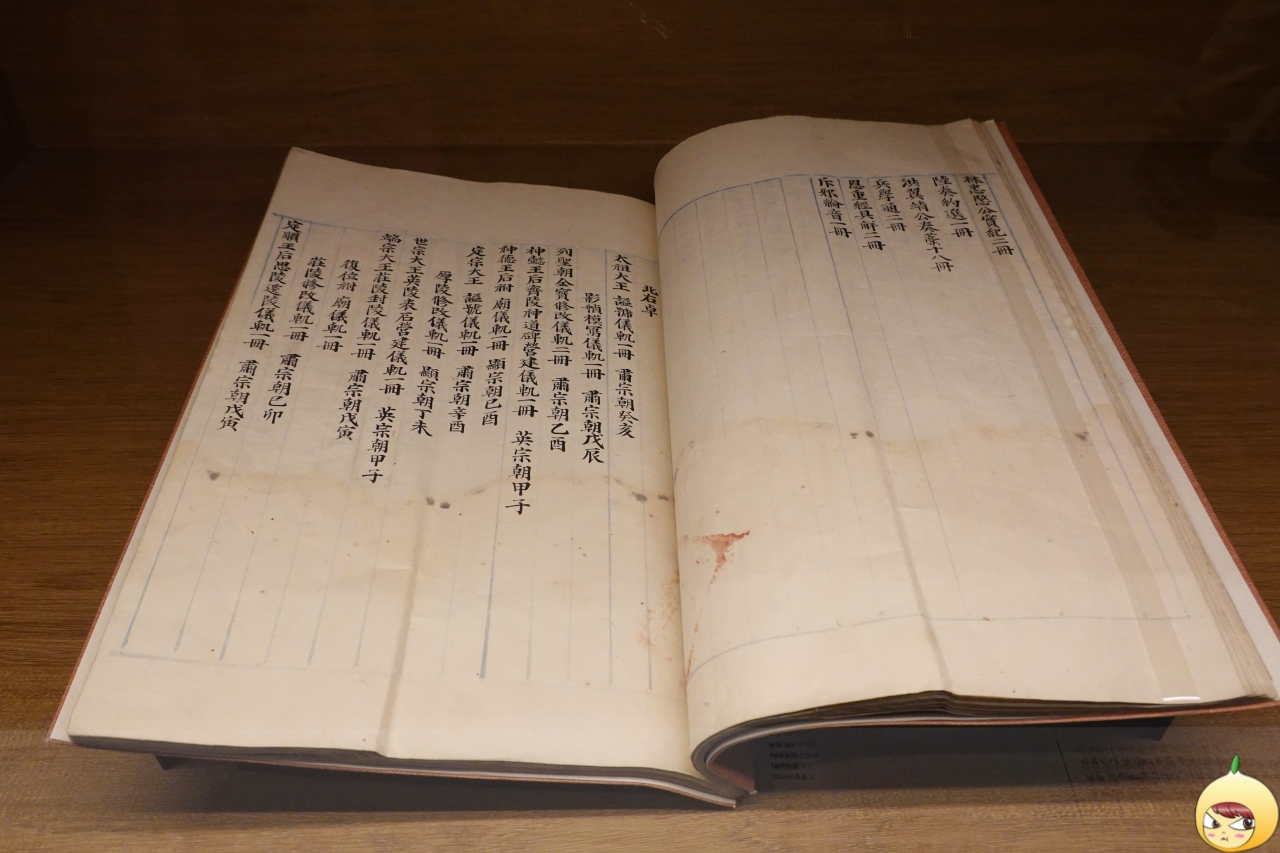 林忠愍公實紀二冊
陸奏約選一冊
洪翼靖公奏藁十八冊
兵學通二冊
恩重經具解二冊
斥邪綸音一冊
北右卓
太祖大王 諡號儀軌一冊 肅宗朝癸亥
影幀模寫儀軌一冊 肅宗朝戊辰
列聖朝金寶修改儀軌二冊 肅宗朝乙酉
神懿王后齊陵神道碑營建儀軌一冊 英宗朝甲子
神德王后祔 廟儀軌一冊 顯宗朝己酉
定宗大王 諡號儀軌一冊 肅宗朝辛酉
厚陵修改儀軌一冊 顯宗朝丁未
世宗大王英陵表石營建儀軌一冊 英宗朝甲子
端宗大王莊陵封陵儀軌一冊 肅宗朝戊寅
復位祔 廟儀軌一冊
莊陵修改儀軌一冊 肅宗朝己卯
定順王后思陵遷陵儀軌一冊 肅宗朝戊寅